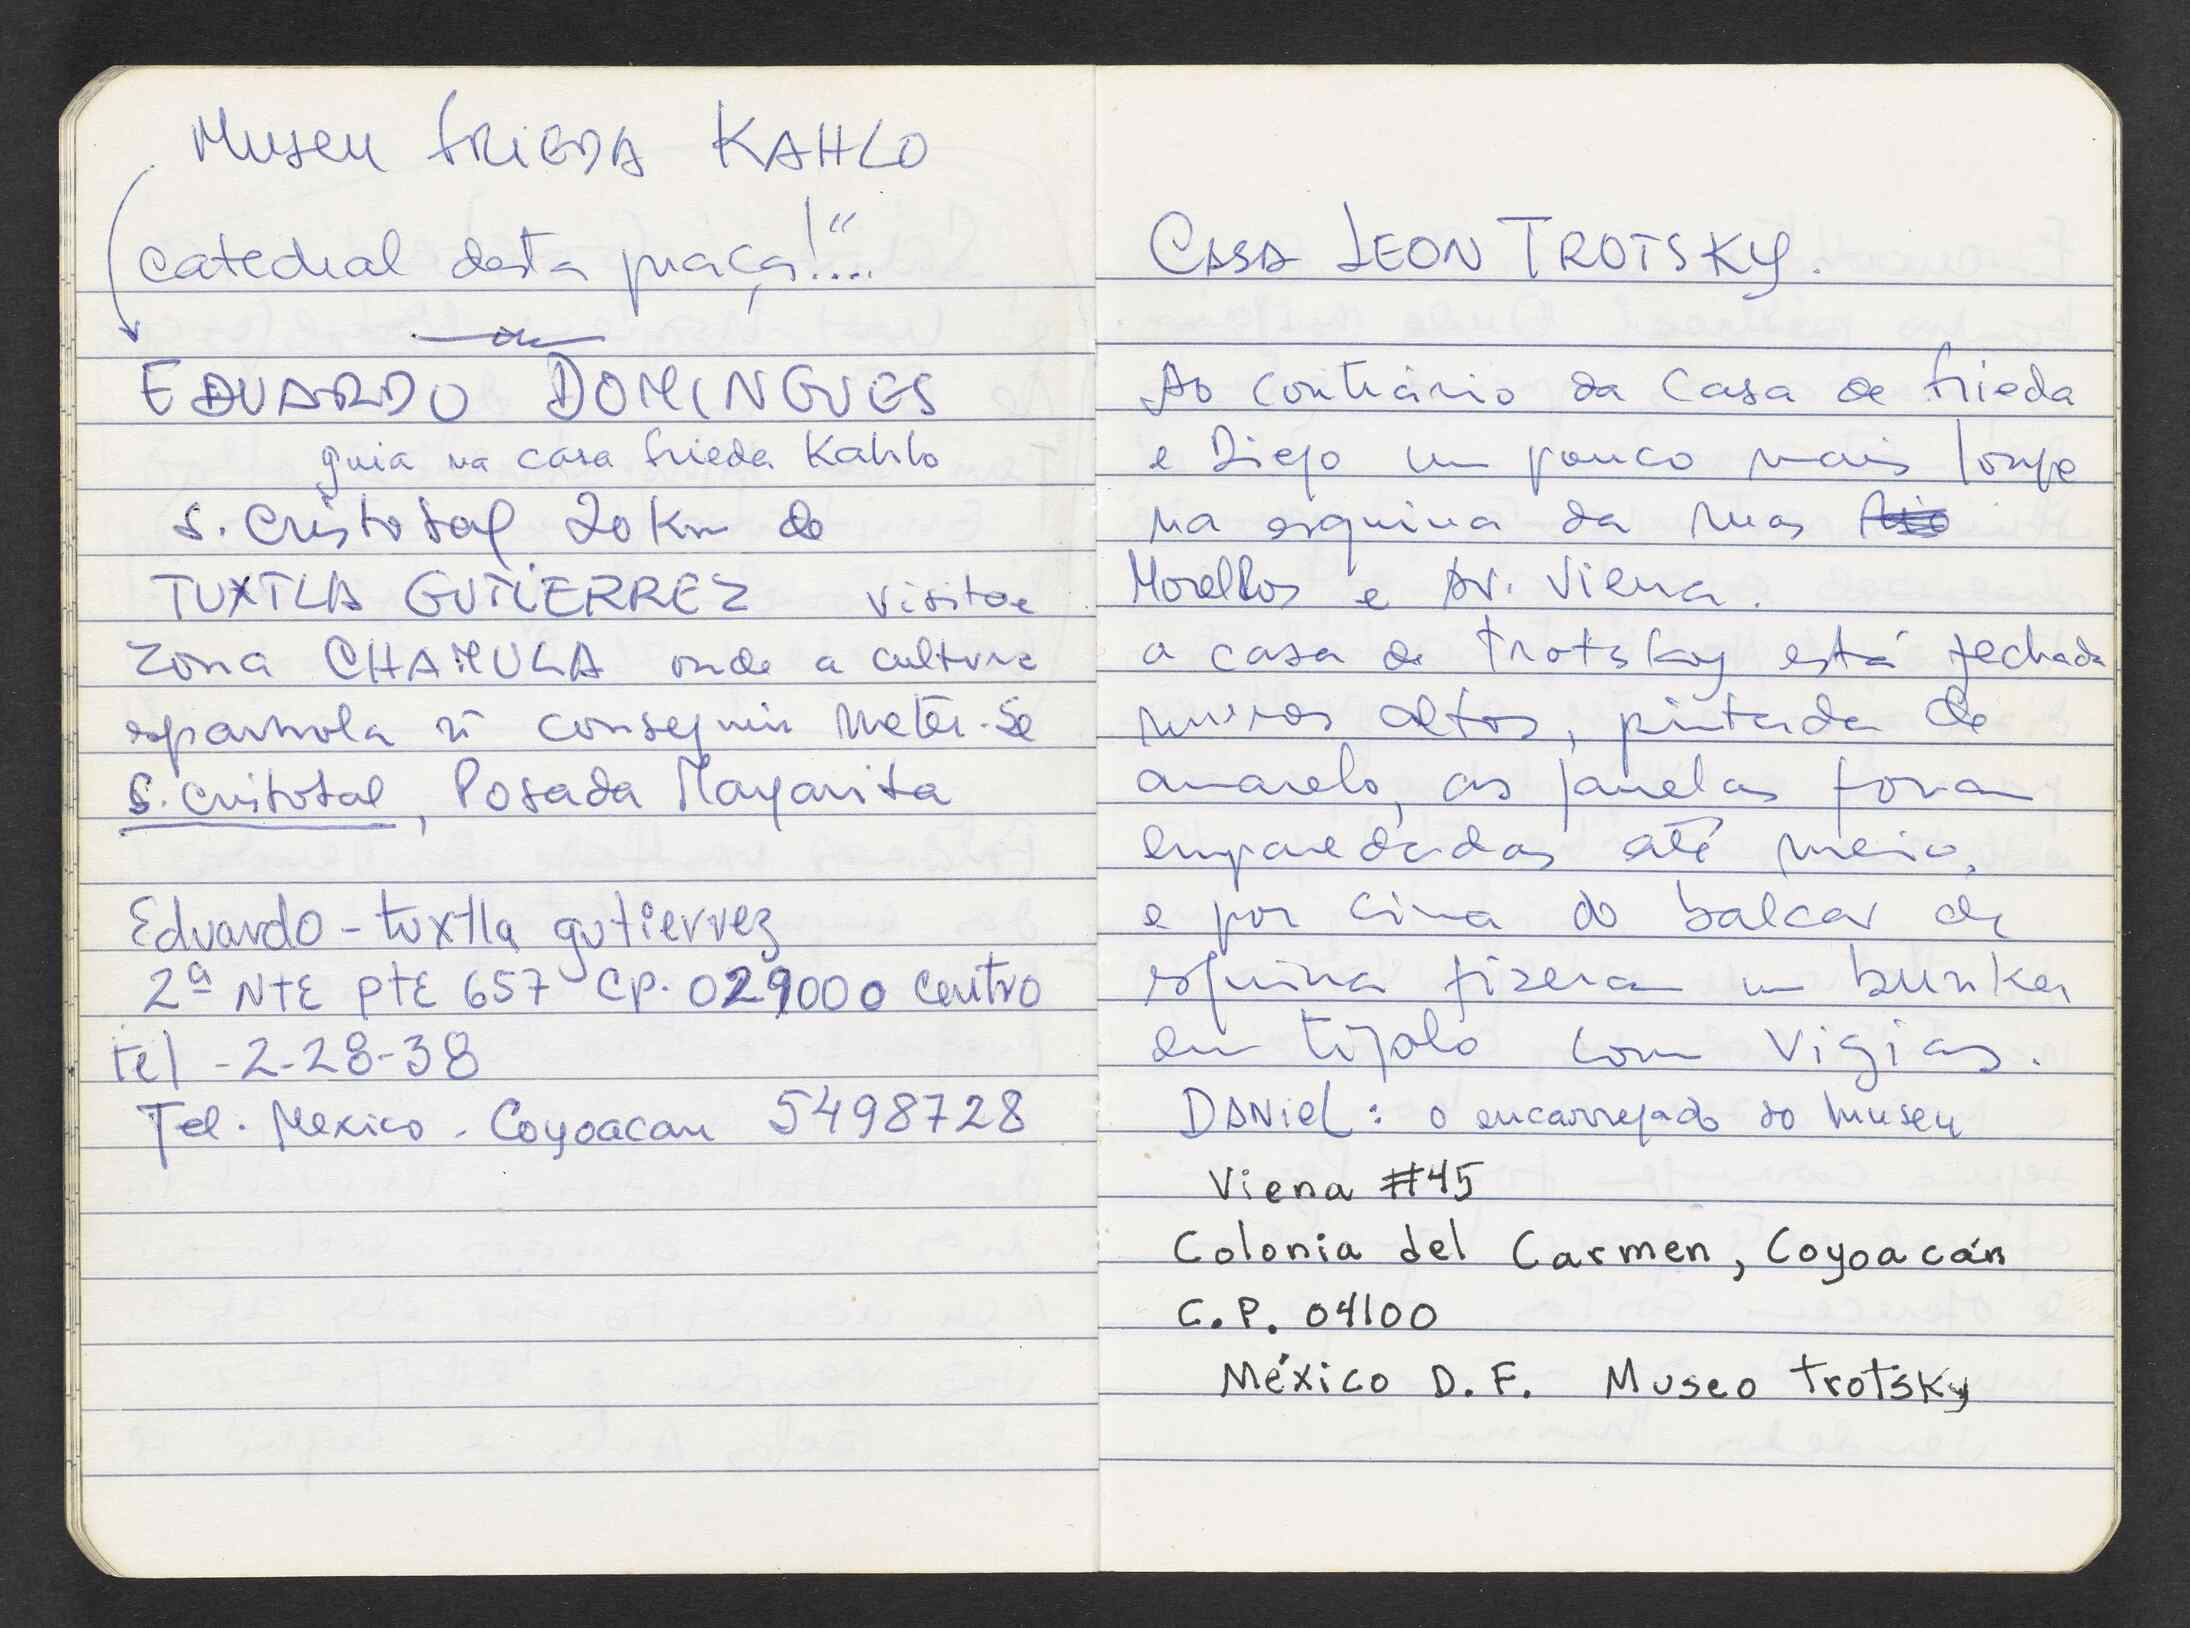 Museu Frieda KAHLO
catedral desta praça!"...
EDUARDO DOMINGUES
guia na casa Frieda Kahlo
S. Cristobal 20 km de
TUXTLA GUTIERREZ visitar
zona CHAMULA onde a cultura
espanhola ñ conseguiu meter-se
S. Cristobal, Posada Margarita
Eduardo - tuxtla gutierrez
2ª NTE PTE 657 CP. 029000 Centro
tel - 2-28-38
Tel. Mexico - Coyoacan 5498728
CASA LEON TROTSKY.
Ao contrário da casa de Frieda
e Diego um pouco mais longe
na esquina da ruas
Morellos e Av. Viena.
a casa de Trotsky está fechada
muros altos, pintada de
amarelo, as janelas foram
emparedadas até meio,
e por cima do balcar de
esquina fizeram um bunker
em tijolo com vigias.
DANIEL: o encarregado do museu
Viena #45
Colonia del Carmen, Coyoacán
C.P. 04100
México D.F. Museo Trotsky